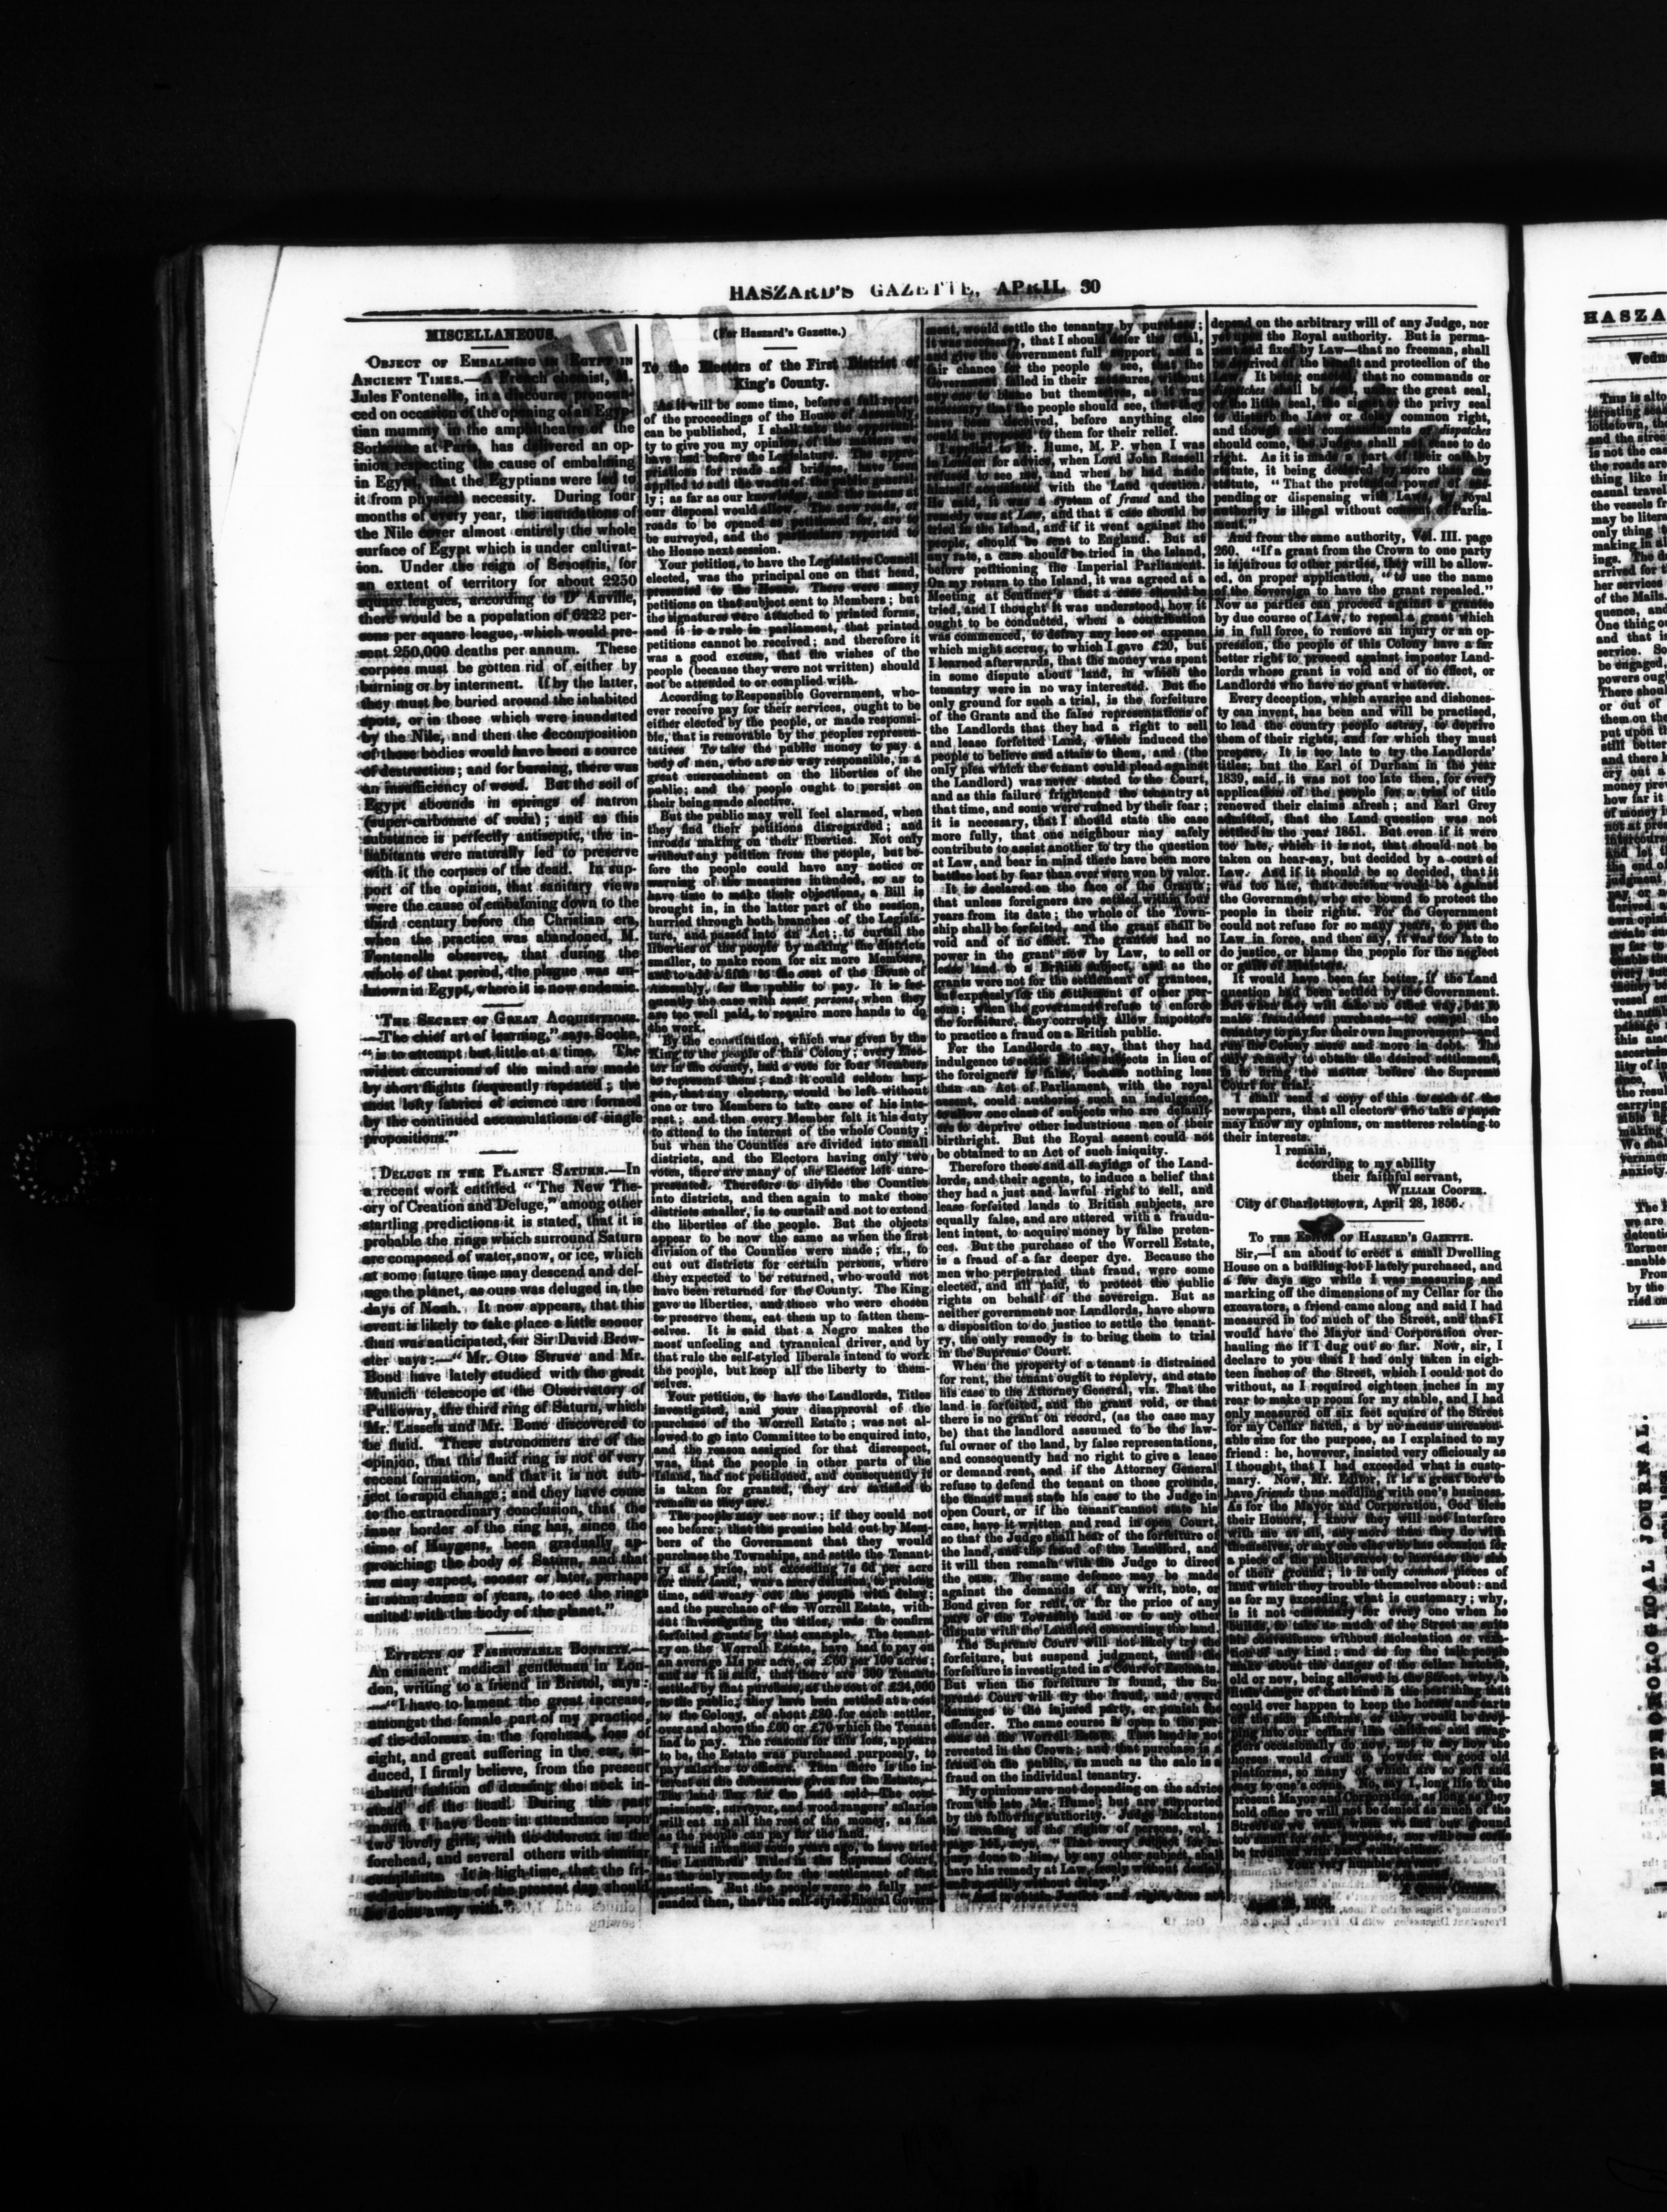 HASZARD'S GAZETTE, APRIL 30
MISCELLANEOUS.
OBJECT OF EMBALMING IN EGYPT IN
ANCIENT TIMES.—A French chemist, M.
Jules Fontenelle, in a discourse pronoun-
ced on occasion of the opening of an Egyp-
tian mummy in the amphitheatre of the
Sorbonne at Paris, has delivered an op-
inion respecting the cause of embalming
in Egypt, that the Egyptians were led to
it from physical necessity. During four
months of every year, the inundations of
the Nile cover almost entirely the whole
surface of Egypt which is under cultivat-
ion. Under the reign of Sesostris, for
an extent of territory for about 2250
square leagues, according to D'Anville,
there would be a population of 6222 per-
sons per square league, which would pre-
sent 250,000 deaths per annum. These
corpses must be gotten rid of either by
burning or by interment. If by the latter,
they must be buried around the inhabited
spots, or in those which were inundated
by the Nile, and then the decomposition
of those bodies would have been a source
of destruction; and for burning, there was
an insufficiency of wood. But the soil of
Egypt abounds in springs of natron
(super-carbonate of soda); and as this
substance is perfectly antiseptic, the in-
habitants were naturally led to preserve
with it the corpses of the dead. In sup-
port of the opinion, that sanitary views
were the cause of embalming down to the
third century before the Christian era,
when the practice was abandoned, M.
Fontenelle observes, that during the
whole of that period, the plague was un-
known in Egypt, where it is now endemic.
THE SECRET OF GREAT ACQUISITIONS.
—The chief art of learning," says Locke,
"is to attempt but little at a time. The
widest excursions of the mind are made
by short flights frequently repeated; the
most lofty fabrics of science are formed
by the continued accumulations of single
propositions."
DELUGE IN THE PLANET SATURN.—In
a recent work entitled "The New The-
ory of Creation and Deluge," among other
startling predictions it is stated, that it is
probable the rings which surround Saturn
are composed of water, snow, or ice, which
at some future time may descend and del-
uge the planet, as ours was deluged in the
days of Noah. It now appears, that this
event is likely to take place a little sooner
than was anticipated, for Sir David Brew-
ster says:—"Mr. Otto Struve and Mr.
Bond have lately studied with the great
Munich telescope at the Observatory of
Pulkoway, the third ring of Saturn, which
Mr. Lassels and Mr. Bone discovered to
be fluid. These astronomers are of the
opinion, that this fluid ring is not of very
recent formation, and that it is not sub-
ject to rapid change; and they have come
to the extraordinary conclusion, that the
inner border of the ring has, since the
time of Huygens, been gradually ap-
proaching the body of Saturn, and that
we may expect, sooner or later, perhaps
in some dozen of years, to see the rings
united with the body of the planet."
EFFECTS OF FASHIONABLE BONNETS.—
An eminent medical gentleman in Lon-
don, writing to a friend in Bristol, says:
—"I have to lament the great increase,
amongst the female part of my practice,
of tic-dolorux in the forehead, loss of
sight, and great suffering in the ear, in-
duced, I firmly believe, from the present
absurd fashion of dressing the neck in-
stead of the head! During the past
month I have been in attendance upon
two lovely girls, with tic-doloreux in the
forehead, and several others with similar
complaints. It is high time, that the fri-
volous bonnets of the present day should
be done away with."
(For Haszard's Gazette.)
To the Electors of the First District of
King's County.
As it will be some time, before a full report
of the proceedings of the House of Assembly,
can be published, I shall take the opportuni-
ty to give you my opinion, of the matters we
have had before the Legislature. The appro-
priations for roads and bridges, have been
applied to suit the wants of the public general-
ly; as far as our knowledge, and the means at
our disposal would allow. The new roads, or
roads to be opened as petitioned for, are to
be surveyed, and the particulars reported to
the House next session.
Your petition, to have the Legislative Council
elected, was the principal one on that head,
presented to the House. There were many
petitions on that subject sent to Members; but
the signatures were attached to printed forms,
and it is a rule in parliament, that printed
petitions cannot be received; and therefore it
was a good excuse, that the wishes of the
people (because they were not written) should
not be attended to or complied with.
According to Responsible Government, who-
ever receive pay for their services, ought to be
either elected by the people, or made responsi-
ble, that is removable by the peoples represen-
tatives To take the public money to pay a
body of men, who are no way responsible, is a
great encroachment on the liberties of the
public; and the people ought to persist on
their being made elective.
But the public may well feel alarmed, when
they find their petitions disregarded; and
inroads making on their liberties. Not only
without any petition from the people, but be-
fore the people could have any notice or
warning of the measures intended, so as to
have time to make their objections, a Bill is
brought in, in the latter part of the session,
hurried through both branches of the Legisla-
ture, and passed into an Act; to curtail the
liberties of the people by making the districts
smaller, to make room for six more Members,
and to add a fifth to the cost of the House of
Assembly, for the public to pay. It is fre-
quently the case with some persons, when they
are too well paid, to require more hands to do
the work.
By the constitution, which was given by the
King to the people of this Colony; every Elec-
tor in the county, had a vote for four Members
to represent them; and it could seldom hap-
pen, that any electors, would be left without
one or two Members to take care of his inte-
rest; and then every Member felt it his duty
to attend to the interest of the whole County;
but when the Counties are divided into small
districts, and the Electors having only two
votes, there are many of the Elector left unre-
presented. Therefore to divide the Counties
into districts, and then again to make those
districts smaller, is to curtail and not to extend
the liberties of the people. But the objects
appear to be now the same as when the first
division of the Counties were made; viz., to
cut out districts for certain persons, where
they expected to be returned, who would not
have been returned for the County. The King
gave us liberties, and those who were chosen
to preserve them, eat them up to fatten them-
selves. It is said that a Negro makes the
most unfeeling and tyrannical driver, and by
that rule the self-styled liberals intend to work
the people, but keep all the liberty to them-
selves.
Your petition, to have the Landlords, Titles
investigated, and your disapproval of the
purchase of the Worrell Estate; was not al-
lowed to go into Committee to be enquired into,
and the reason assigned for that disrespect,
was, that the people in other parts of the
Island, had not petitioned, and consequently it
is taken for granted, they are satisfied to
remain as they are.
The people may see now; if they could not
see before; that the promise held out by Mem-
bers of the Government that they would
purchase the Townships, and settle the Tenant-
ry at a price, not exceeding 7s 6d per acre
for their land, was a mere delusion, to prolong
time, and weary out the people with delay;
and the purchase of the Worrell Estate, with-
out investigating the titles, was to confirm
forfeited grants by that example. The tenant-
ry on the Worrell Estate, have had to pay on
an average 11s per acre, or £60 per 100 acres;
and as it is said, that there are 300 Tenants
settled by that purchase, at the cost of £24,000
to the public; they have been settled at a cost
to the Colony, of about £80 for each settler,
over and above the £60 or £70 which the Tenant
had to pay. The reasons for this loss, appears
to be, the Estate was purchased purposely, to
pay salaries to officers. Then there is the in-
terest on the debentures given for the Estate,—
The land Tax for the land sold—The com-
missioner, surveyor, and wood rangers' salaries
will eat up all the rest of the money, as fast
as the people can pay for the land.
I had intended some years ago, to have tried
the Landlords' Titles in the Supreme Court,
as the only remedy for the settlement of that
question. But the people were so fully per-
suaded then, that the self-styled liberal Govern-
ment, would settle the tenantry by purchase;
it was necessary, that I should defer the trial,
and give the Government full support, and a
fair chance for the people to see, that the
Government failed in their measures, without
any one to blame but themselves, as it was
necessary that the people should see, that they
have been deceived, before anything else
could be proposed to them for their relief.
I applied to Mr. Hume, M. P. when I was
in London for advice, when Lord John Russell
refused to see me, and when he had made
himself acquainted with the Land question.
He said, it was a system of fraud and the
remedy was at Law, and that a case should be
tried in the Island, and if it went against the
people, should be sent to England. But at
any rate, a case should be tried in the Island,
before petitioning the Imperial Parliament.
On my return to the Island, it was agreed at a
Meeting at Sentiner's that a case should be
tried, and I thought it was understood, how it
ought to be conducted, when a contribution
was commenced, to defray any loss or expense
which might accrue, to which I gave £20, but
I learned afterwards, that the money was spent
in some dispute about land, in which the
tenantry were in no way interested. But the
only ground for such a trial, is the forfeiture
of the Grants and the false representations of
the Landlords that they had a right to sell
and lease forfeited Land, which induced the
people to believe and attain to them, and (the
only plea which the tenant could plead against
the Landlord) was never stated to the Court,
and as this failure frightened the tenantry at
that time, and some were ruined by their fear;
it is necessary, that I should state the case
more fully, that one neighbour may safely
contribute to assist another to try the question
at Law, and bear in mind there have been more
battles lost by fear than ever were won by valor.
It is declared on the face of the Grants;
that unless foreigners are settled within four
years from its date; the whole of the Town-
ship shall be forfeited, and the grant shall be
void and of no effect. The grantee had no
power in the grant now by Law, to sell or
lease land to a British subject, and as the
grants were not for the settlement of grantees,
but expressly for the settlement of other per-
sons; when the government refuse to enforce
the forfeiture, they corruptly allow impostors
to practice a fraud on a British public.
For the Landlords to say, that they had
indulgence to settle British subjects in lieu of
the foreigners is false, because nothing less
than an Act of Parliament, with the royal
assent, could authorise such an indulgence,
to allow one class of subjects who are default-
ers to deprive other industrious men of their
birthright. But the Royal assent could not
be obtained to an Act of such iniquity.
Therefore those and all sayings of the Land-
lords, and their agents, to induce a belief that
they had a just and lawful right to sell, and
lease forfeited lands to British subjects, are
equally false, and are uttered with a fraudu-
lent intent, to acquire money by false preten-
ces. But the purchase of the Worrell Estate,
is a fraud of a far deeper dye. Because the
men who perpetrated that fraud, were some
elected, and all paid, to protect the public
rights on behalf of the sovereign. But as
neither government nor Landlords, have shown
a disposition to do justice to settle the tenant-
ry, the only remedy is to bring them to trial
in the Supreme Court.
When the property of a tenant is distrained
for rent, the tenant ought to replevy, and state
his case to the Attorney General, viz. That the
land is forfeited, and the grant void, or that
there is no grant on record, (as the case may
be) that the landlord assumed to be the law-
ful owner of the land, by false representations,
and consequently had no right to give a lease
or demand rent, and if the Attorney General
refuse to defend the tenant on those grounds,
the tenant must state his case to the Judge in
open Court, or if the tenant cannot state his
case, have it written and read in open Court,
so that the Judge shall hear of the forfeiture of
the land, and the fraud of the Landlord, and
it will then remain with the Judge to direct
the case. The same defence may be made
against the demands of any writ, note, or
Bond given for rent, or for the price of any
part of the Township land or to any other
dispute with the Landlord concerning the land.
The Supreme Court will not likely try the
forfeiture, but suspend judgment, until the
forfeiture is investigated in a Court of Escheats.
But when the forfeiture is found, the Su-
preme Court will try the fraud, and award
damages to the injured party, or punish the
offender. The same course is open to the per-
sons on the Worrell Estate. That land is not
revested in the Crown; and that purchase is a
fraud on the public, as much as the sale is a
fraud on the individual tenantry.
My opinions are not depending on the advice
from the late Mr. Hume; but are supported
by the following authority. Judge Blackstone
in treating of the rights of persons, vol. 1
page 141, says, "That every subject for in-
jury done to him, by any other subject, shall
have his remedy at Law, freely without denial,
and speedily without delay."
"And to obtain Justice and right, does not
depend on the arbitrary will of any Judge, nor
yet upon the Royal authority. But is perma-
nent and fixed by Law—that no freeman, shall
be deprived of the benefit and protection of the
Law. It being enacted, that no commands or
dispatches shall be sent, under the great seal,
or the little seal, the signet or the privy seal
to disturb the Law or delay common right,
and though such commandments or dispatches
should come, the Judges shall not cease to do
right. As it is made a part of their oath by
statute, it being declared by more than one
statute, "That the pretended power of sus-
pending or dispensing with Laws, by royal
authority is illegal without consent of Parlia-
ment."
And from the same authority, Vol. III. page
260. "If a grant from the Crown to one party
is injurious to other parties, they will be allow-
ed, on proper application, "to use the name
of the Sovereign to have the grant repealed."
Now as parties can proceed against a grantee
by due course of Law, to repeal a grant which
is in full force, to remove an injury or an op-
pression, the people of this Colony have a far
better right to proceed against impostor Land-
lords whose grant is void and of no effect, or
Landlords who have no grant whatever.
Every deception, which avarice and dishones-
ty can invent, has been and will be practised,
to lead the country people astray, to deprive
them of their rights, and for which they must
prepare. It is too late to try the Landlords'
titles; but the Earl of Durham in the year
1839, said, it was not too late then, for every
application of the people for a trial of title
renewed their claims afresh; and Earl Grey
admitted, that the Land question was not
settled in the year 1851. But even if it were
too late, which it is not, that should not be
taken on hear-say, but decided by a court of
Law. And if it should be so decided, that it
was too late, that decision would be against
the Government, who are bound to protect the
people in their rights. For the Government
could not refuse for so many years, to put the
Law in force, and then say, it was too late to
do justice, or blame the people for the neglect
or guilt of Ministers.
It would have been far better, if the Land
question had been settled by the Government.
But when they will take no other way, but to
make fraudulent purchases—to compel the
tenantry to pay for their own improvement—and
run the Colony more and more in debt. The
only remedy to obtain the desired settlement,
is to bring the matter before the Supreme
Court for trial.
I shall send a copy of this to each of the
newspapers, that all electors who take a paper
may know my opinions, on matteres relating to
their interests.
I remain,
according to my ability
their faithful servant,
WILLIAM COOPER.
City of Charlottetown, April 28, 1856.
TO THE EDITOR OF HASZARD'S GAZETTE.
Sir,—I am about to erect a small Dwelling
House on a building lot I lately purchased, and
a few days ago while I was measuring and
marking off the dimensions of my Cellar for the
excavators, a friend came along and said I had
measured in too much of the Street, and that I
would have the Mayor and Corporation over-
hauling me if I dug out so far. Now, sir, I
declare to you that I had only taken in eigh-
teen inches of the Street, which I could not do
without, as I required eighteen inches in my
rear to make up room for my stable, and I had
only measured off six feet square of the Street
for my Cellar hatch, a by no means unreason-
able size for the purpose, as I explained to my
friend: he, however, insisted very officiously as
I thought, that I had exceeded what is custo-
mary. Now, Mr. Editor, it is a great bore to
have friends thus meddling with one's business.
As for the Mayor and Corporation, God bless
their Honors, I know they will not interfere
with me at all, any more than they do with
themselves, or any one else who has occasion for
a piece of the public street to increase the size
of their ground: it is only common pieces of
land which they trouble themselves about: and
as for my exceeding what is customary; why,
is it not customary for every one when he
builds, to take as much of the Street as suits
his convenience without molestation or vexa-
tion of any kind: and as for the talk people
make about the danger of the cellar hatches,
old or new, being allowed in the Street, why, a
little danger of that kind is the best thing that
could ever happen to keep the horses and carts
off the side platforms, or they would be drop-
ping into our cellars like children and strag-
glers occasionally do now, not to say how the
horses would crush to powder the good old
platforms, so many of which are so soft and
easy to one's corns. No, say I, long life to the
present Mayor and Corporation, as long as they
hold office we will not be denied as much of the
Street as we want, when we find our ground
too small for our purposes, nor will our corns
be troubled with hard walks either.
Your very humble servant,
HASZA
Wedn
METEOROLOGICAL JOURNAL.